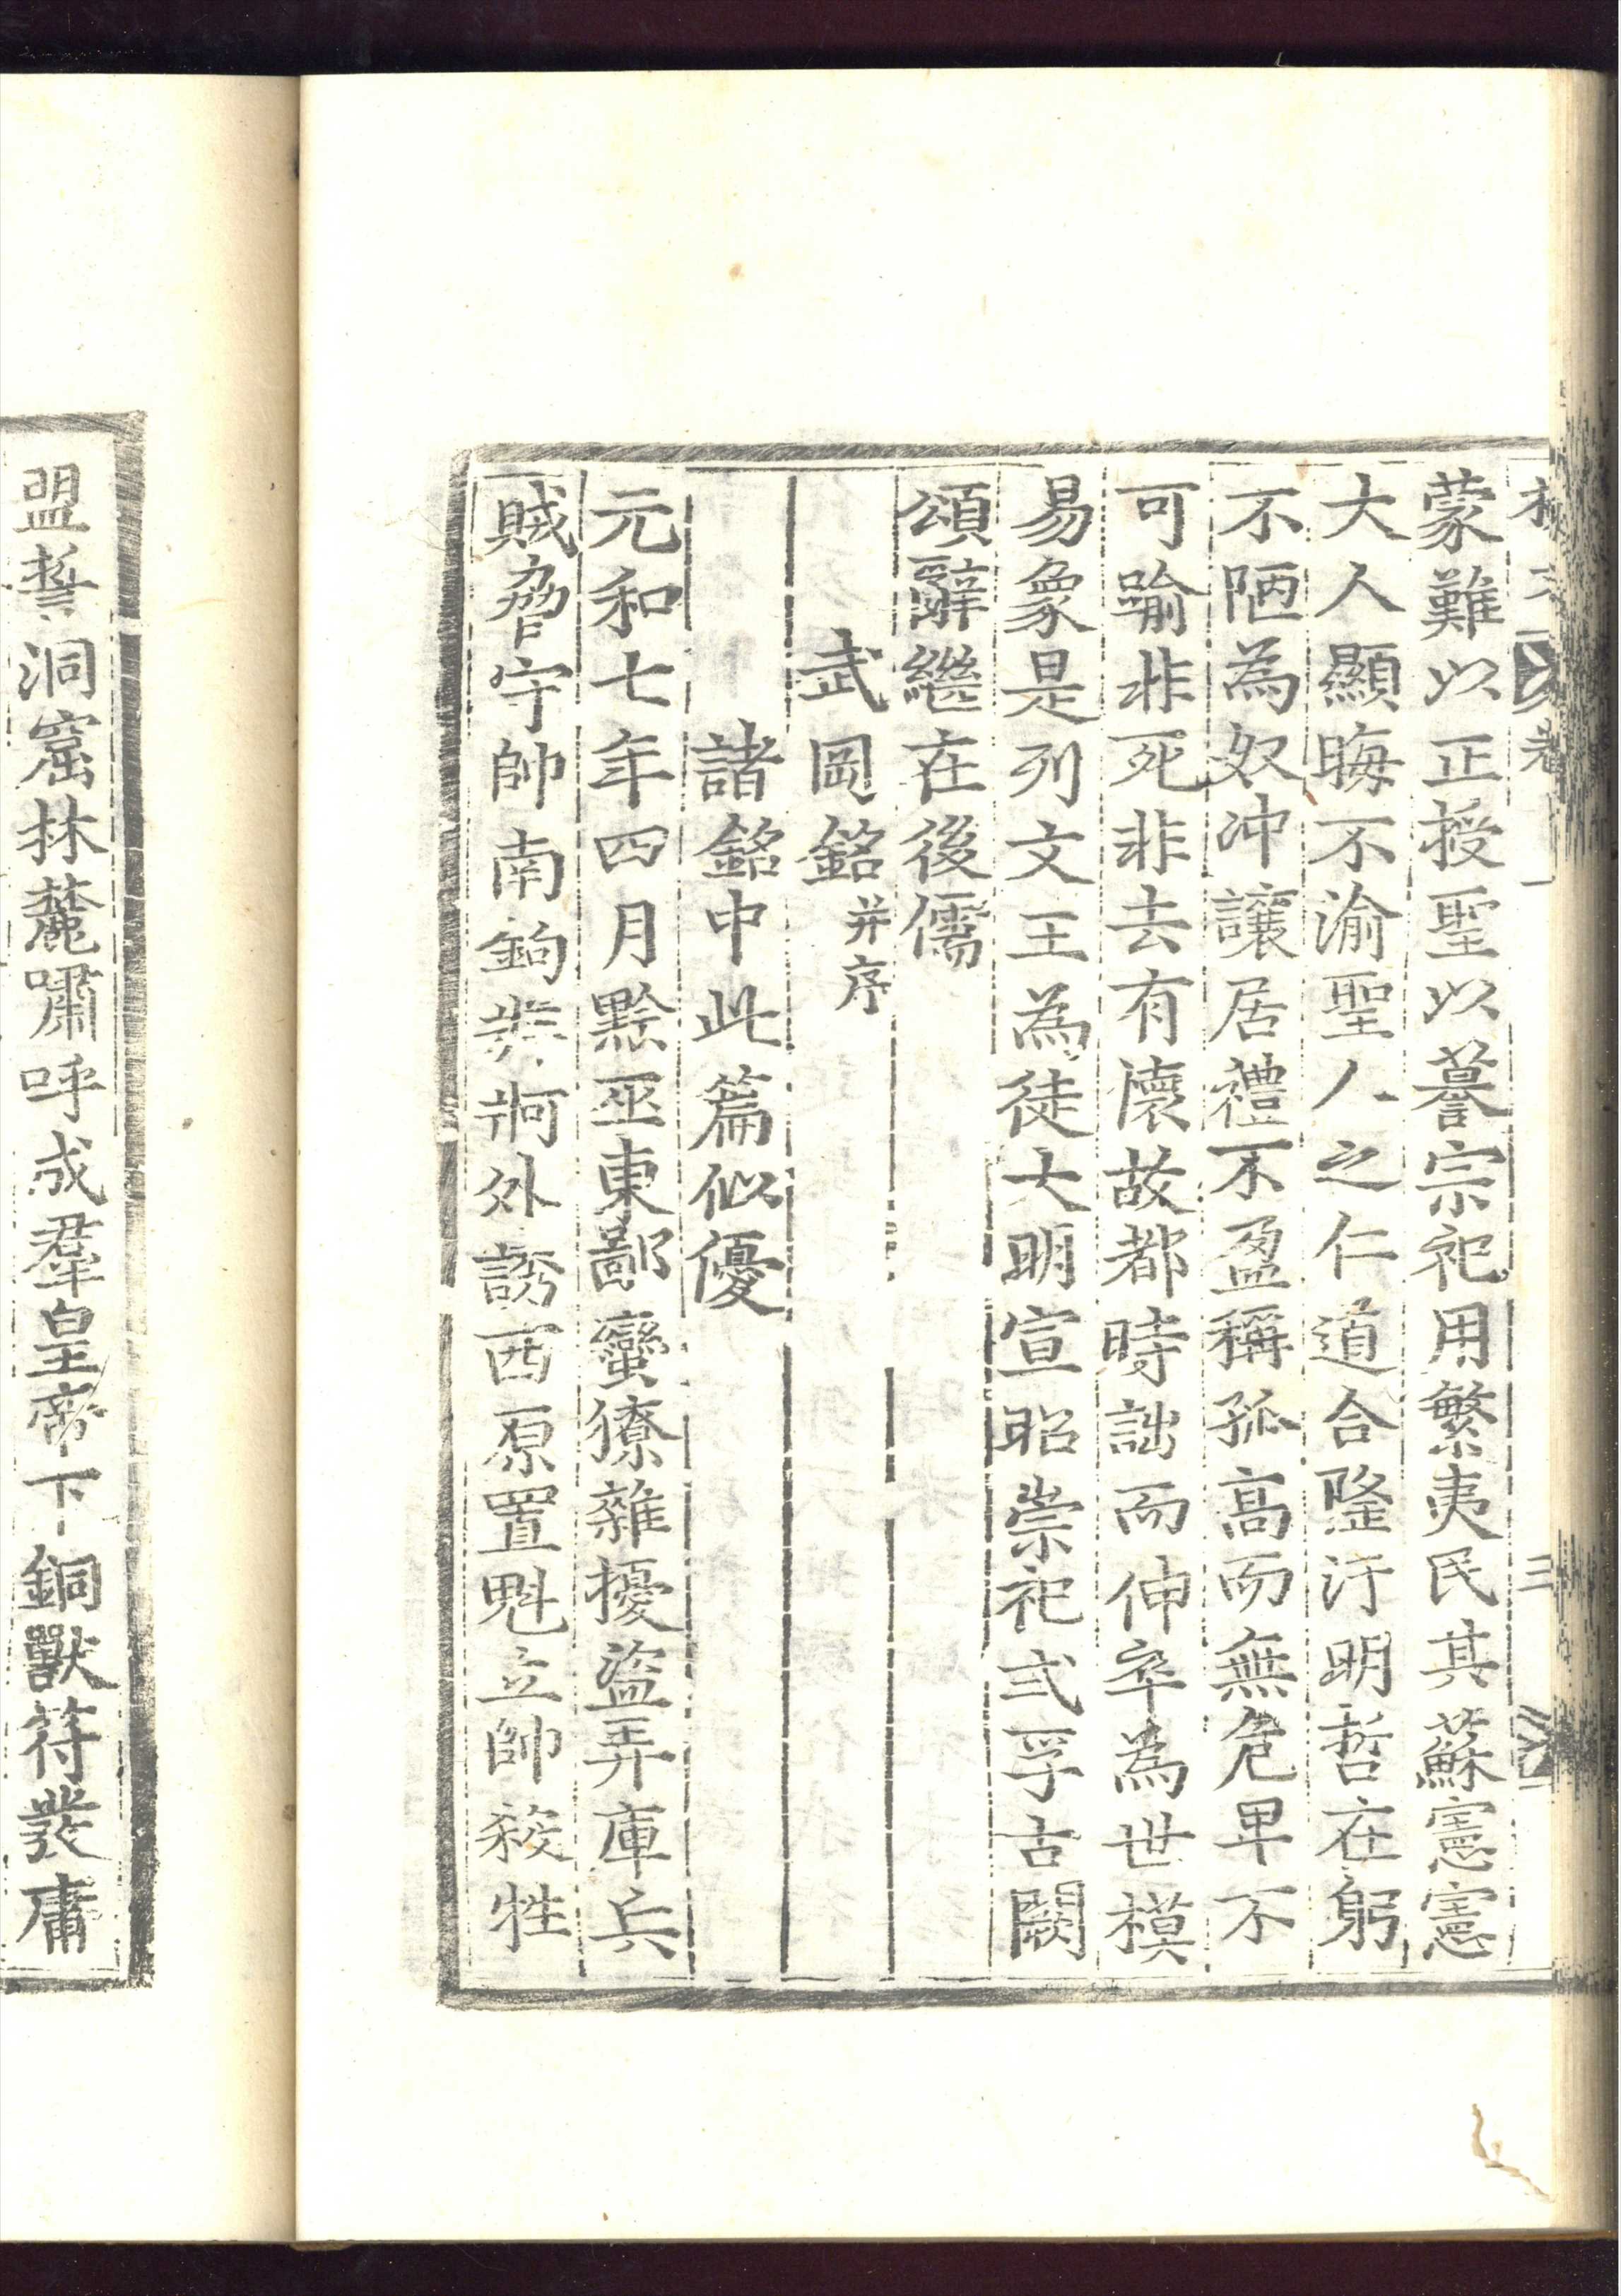 蒙難以正授聖以謩宗祀用繁夷民其蘇憲憲
大人顯晦不渝聖人之仁道合隆汙明哲在躬
不陋為奴冲讓居禮不盈稱孤高而無危卑不
可踰非死非去有懷故都時詘而伸卒為世模
易象是列文王為徒大明宣昭崇祀式孚古闕
頌辭繼在後儒
武岡銘并序
諸銘中此篇似優
元和七年四月黔巫東鄙蠻獠雜擾盜弄庫兵
賊脅守帥南鉤牂牁外誘西原置魁立帥殺牲
盟誓洞窟林麓嘯呼成羣皇帝下銅獸符發庸